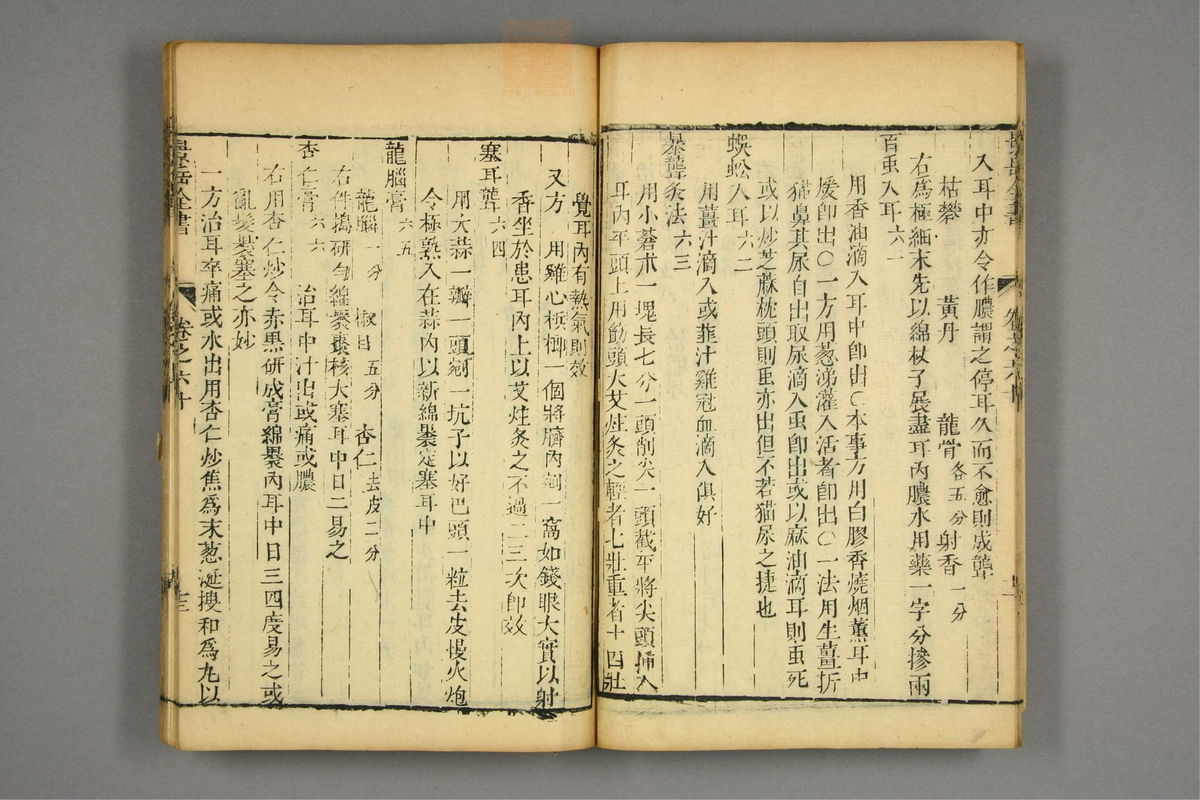 景岳全書 卷之六十
入耳中亦令作膿謂之停耳久而不愈則成聾
枯礬 黃丹 龍骨各五分 射香一分
右爲極細末先以綿杖子展盡耳內膿水用藥一字分摻兩
百䖝入耳六一
用香油滴入耳中卽出〇本事方用白膠香燒烟薰耳中
煖卽出〇一方用葱涕灌入活者卽出〇一法用生薑折
猫鼻其尿自出取尿滴入䖝卽出或以麻油滴耳則䖝死
或以炒芝蔴枕頭則䖝亦出但不若猫尿之捷也
蜈蚣入耳六二
用薑汁滴入或韭汁雞冠血滴入俱好
暴聾灸法六三
用小蒼朮一塊長七分一頭削尖一頭截平將尖頭插入
耳內平頭上用筯頭大艾炷灸之輕者七壯重者十四壯
覺耳內有熱氣則效
又方 用雞心檳榔一個將臍內剜一窩如錢眼大實以射
香坐於患耳內上以艾炷灸之不過二三次卽效
塞耳聾六四
用大蒜一瓣一頭剜一坑子以好巴頭一粒去皮慢火炮
令極熟入在蒜內以新綿裹定塞耳中
龍腦膏六五
龍腦一分 椒目五分 杏仁去皮二分
右件搗研勻綿裹棗核大塞耳中日二易之
杏仁膏六六 治耳中汁出或痛或膿
右用杏仁炒令赤黑研成膏綿裹內耳中日三四度易之或
亂髮裹塞之亦妙
一方治耳卒痛或水出用杏仁炒焦爲末葱涎搜和爲丸以
景岳全書 卷之六十 十三